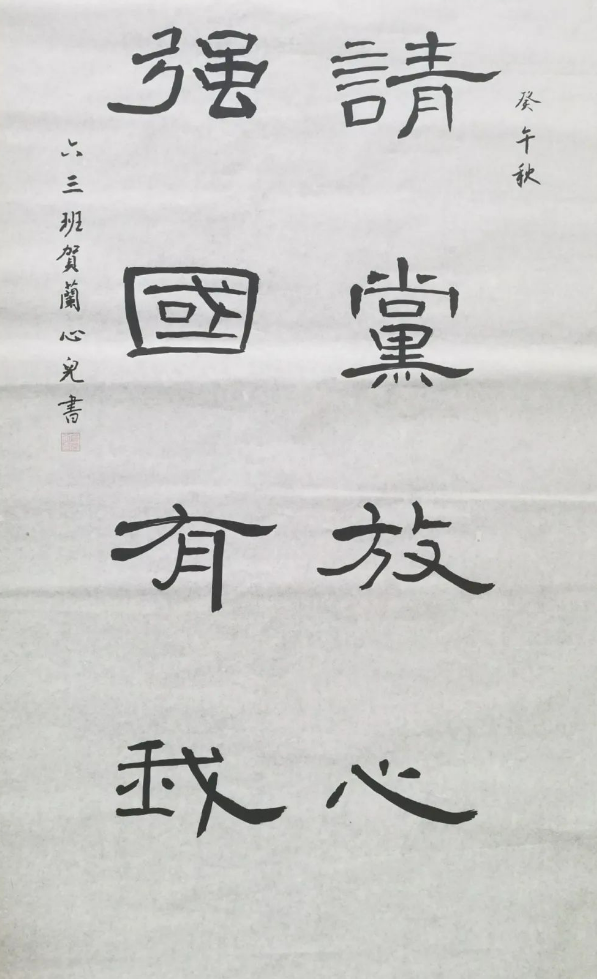 癸午秋
請黨放心
强國有我
六三班賀蘭心兒書